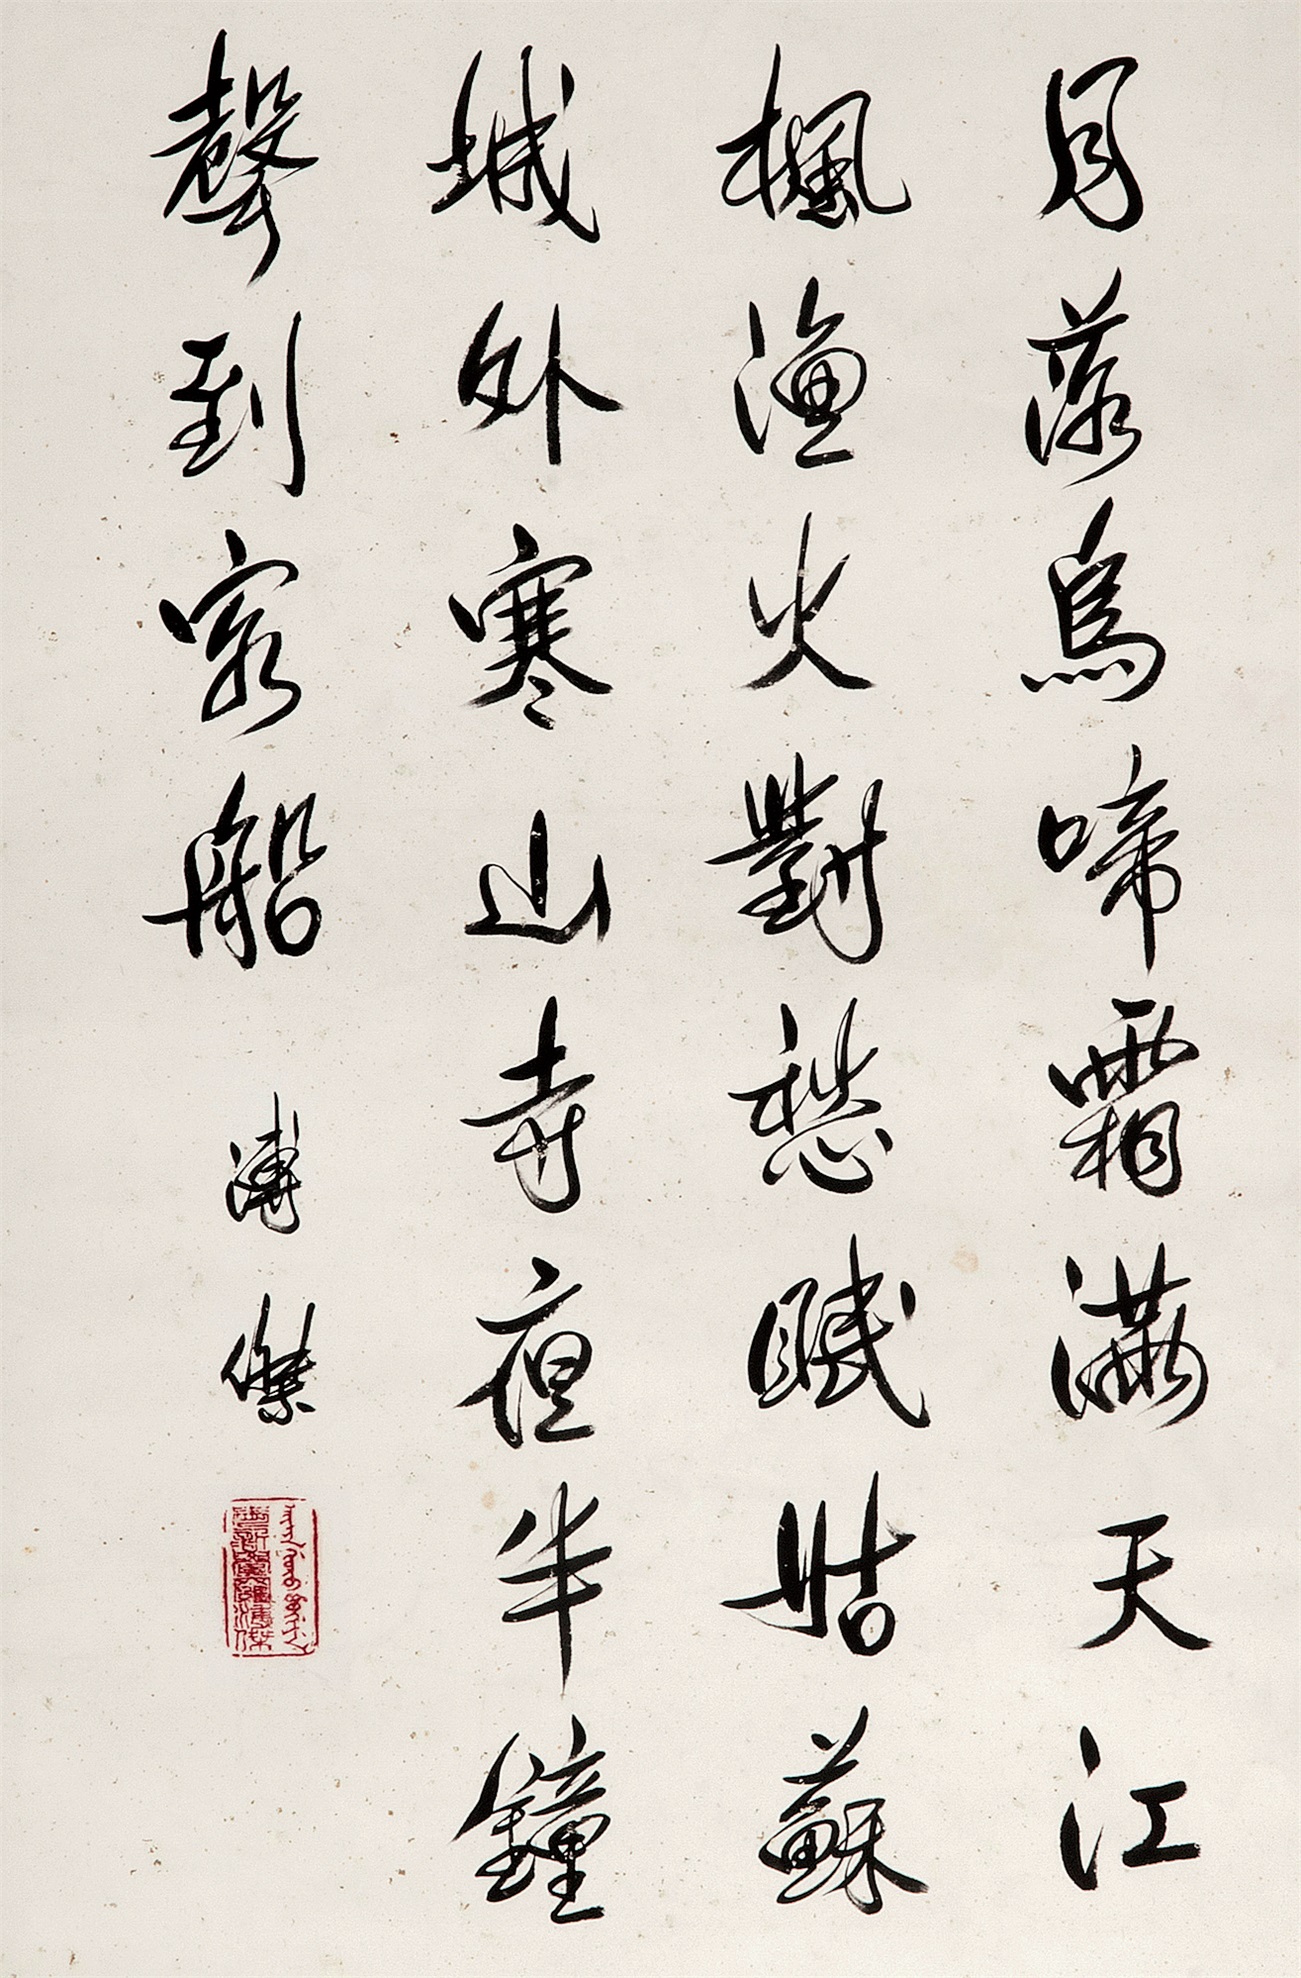 月落烏啼霜滿天江
楓漁火對愁眠姑蘇
城外寒山寺夜半鐘
聲到客船 溥傑
愛新覺羅溥傑